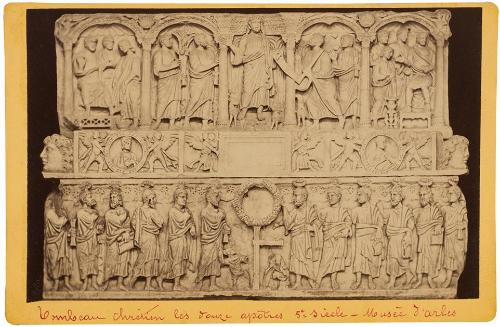 Tombeau chrétien les douze apôtres 5e siècle — Musée d'arles